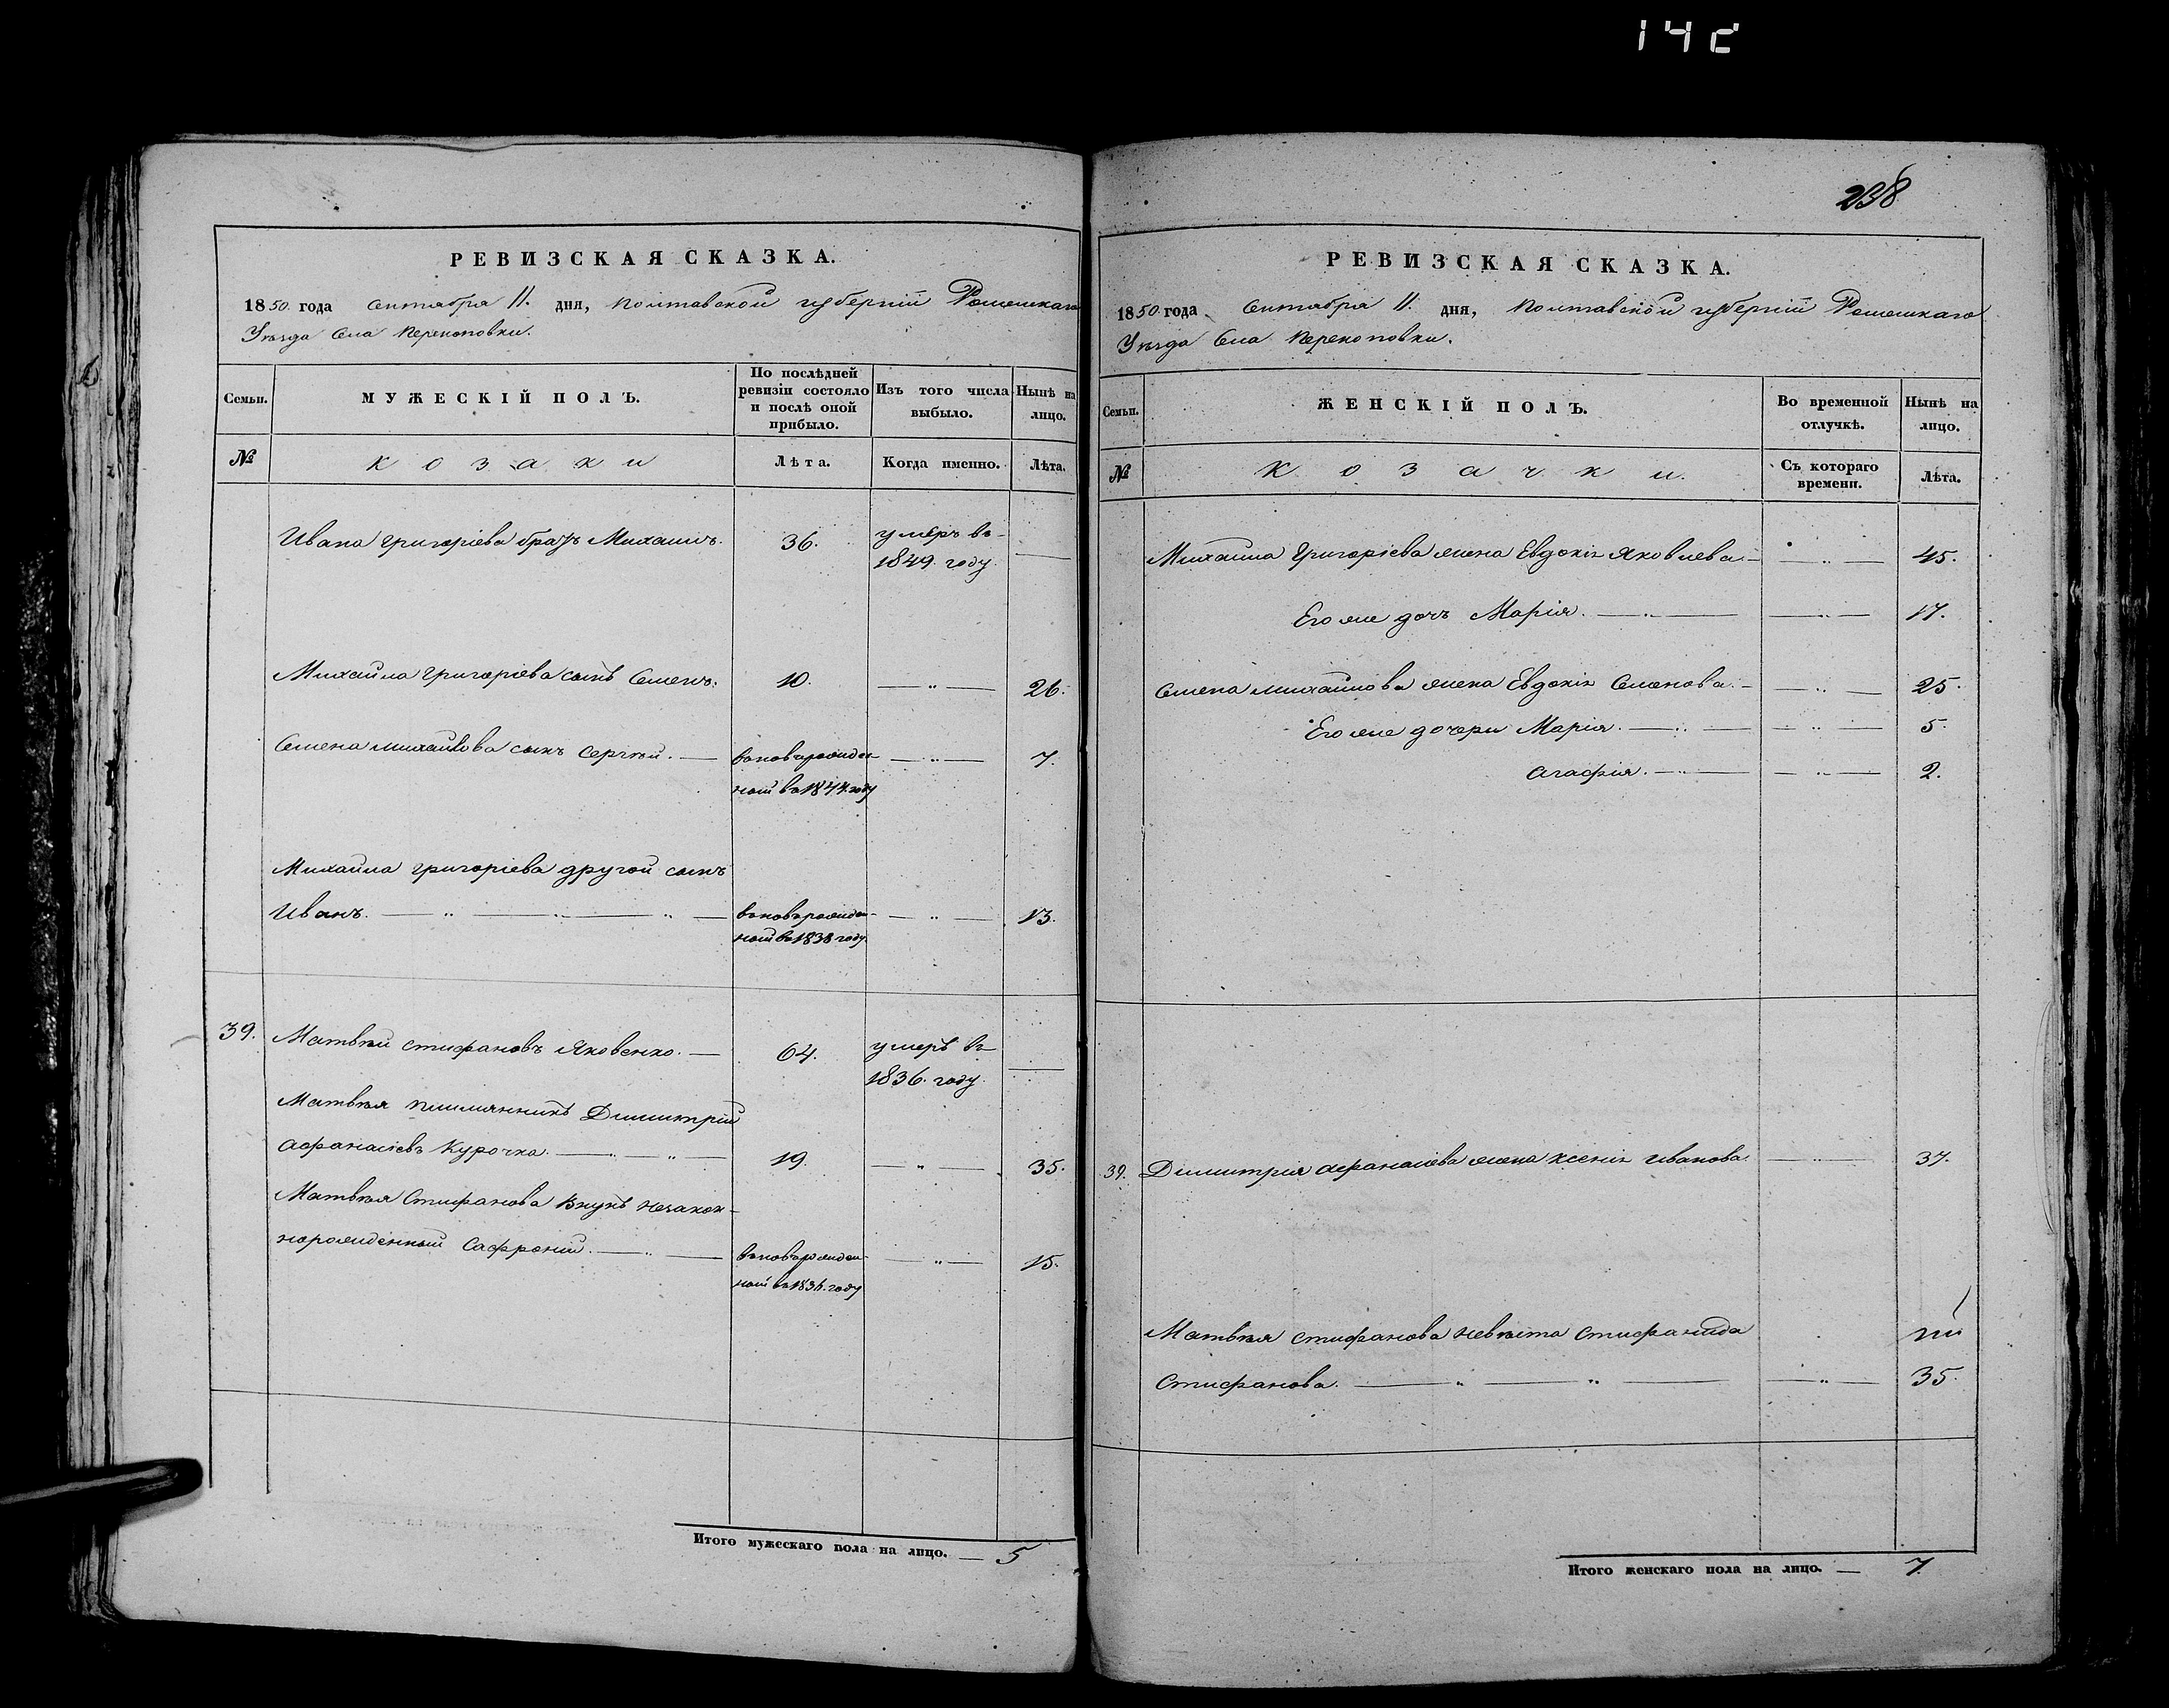 14c
238
РЕВИЗСКАЯ СКАЗКА.
1850 года Сентября 11. дня, Полтавской губерніи Роменскаго
Уѣзда Села Перекоповки.
Семьи.
МУЖЕСКІЙ ПОЛЪ.
По послѣдней ревизіи состояло и послѣ оной прибыло.
Изъ того числа выбыло.
Нынѣ на лицо.
№
Козаки
Лѣта.
Когда именно.
Лѣта.
Ивана Григоріева братъ Михаилъ. 36. умеръ въ
1849. году.
Михайла Григоріева сынъ Семенъ. 10. 26.
Семена Михайлова сынъ Сергѣй. вновьрожден- 7.
ной въ 1844. году
Михайла Григоріева другой сынъ
Иванъ. вновьрожден- 13.
ной въ 1838 году.
39. Матвѣй Стифановъ Яковенко. 64. умеръ въ
1836. году.
Матвѣя племянникъ Димитрій
Афанасіевъ Курочка. 19. 35.
Матвѣя Стифанова внукъ незакон-
норожденный Сафроній. вновьрожден- 15.
ной въ году
Итого мужескаго пола на лицо. 5
РЕВИЗСКАЯ СКАЗКА.
1850 года Сентября 11. дня, Полтавской губерніи Роменскаго
Уѣзда Села Перекоповки.
Семьи.
ЖЕНСКІЙ ПОЛЪ.
Во временной отлучкѣ.
Нынѣ на лицо.
№
Козачки.
Съ котораго времени.
Лѣта.
Михайла Григоріева жена Евдокія Яковлева. 45.
Его же дочь Марія. 17.
Семена Михайлова жена Евдокія Семенова. 25.
Его же дочери Марія. 5.
Агафія. 2.
39. Димитрія Афанасіева жена Ксенія Иванова. 37.
Матвѣя Стифанова невѣста Стифанида
Стифанова. 35.
Итого женскаго пола на лицо. 7